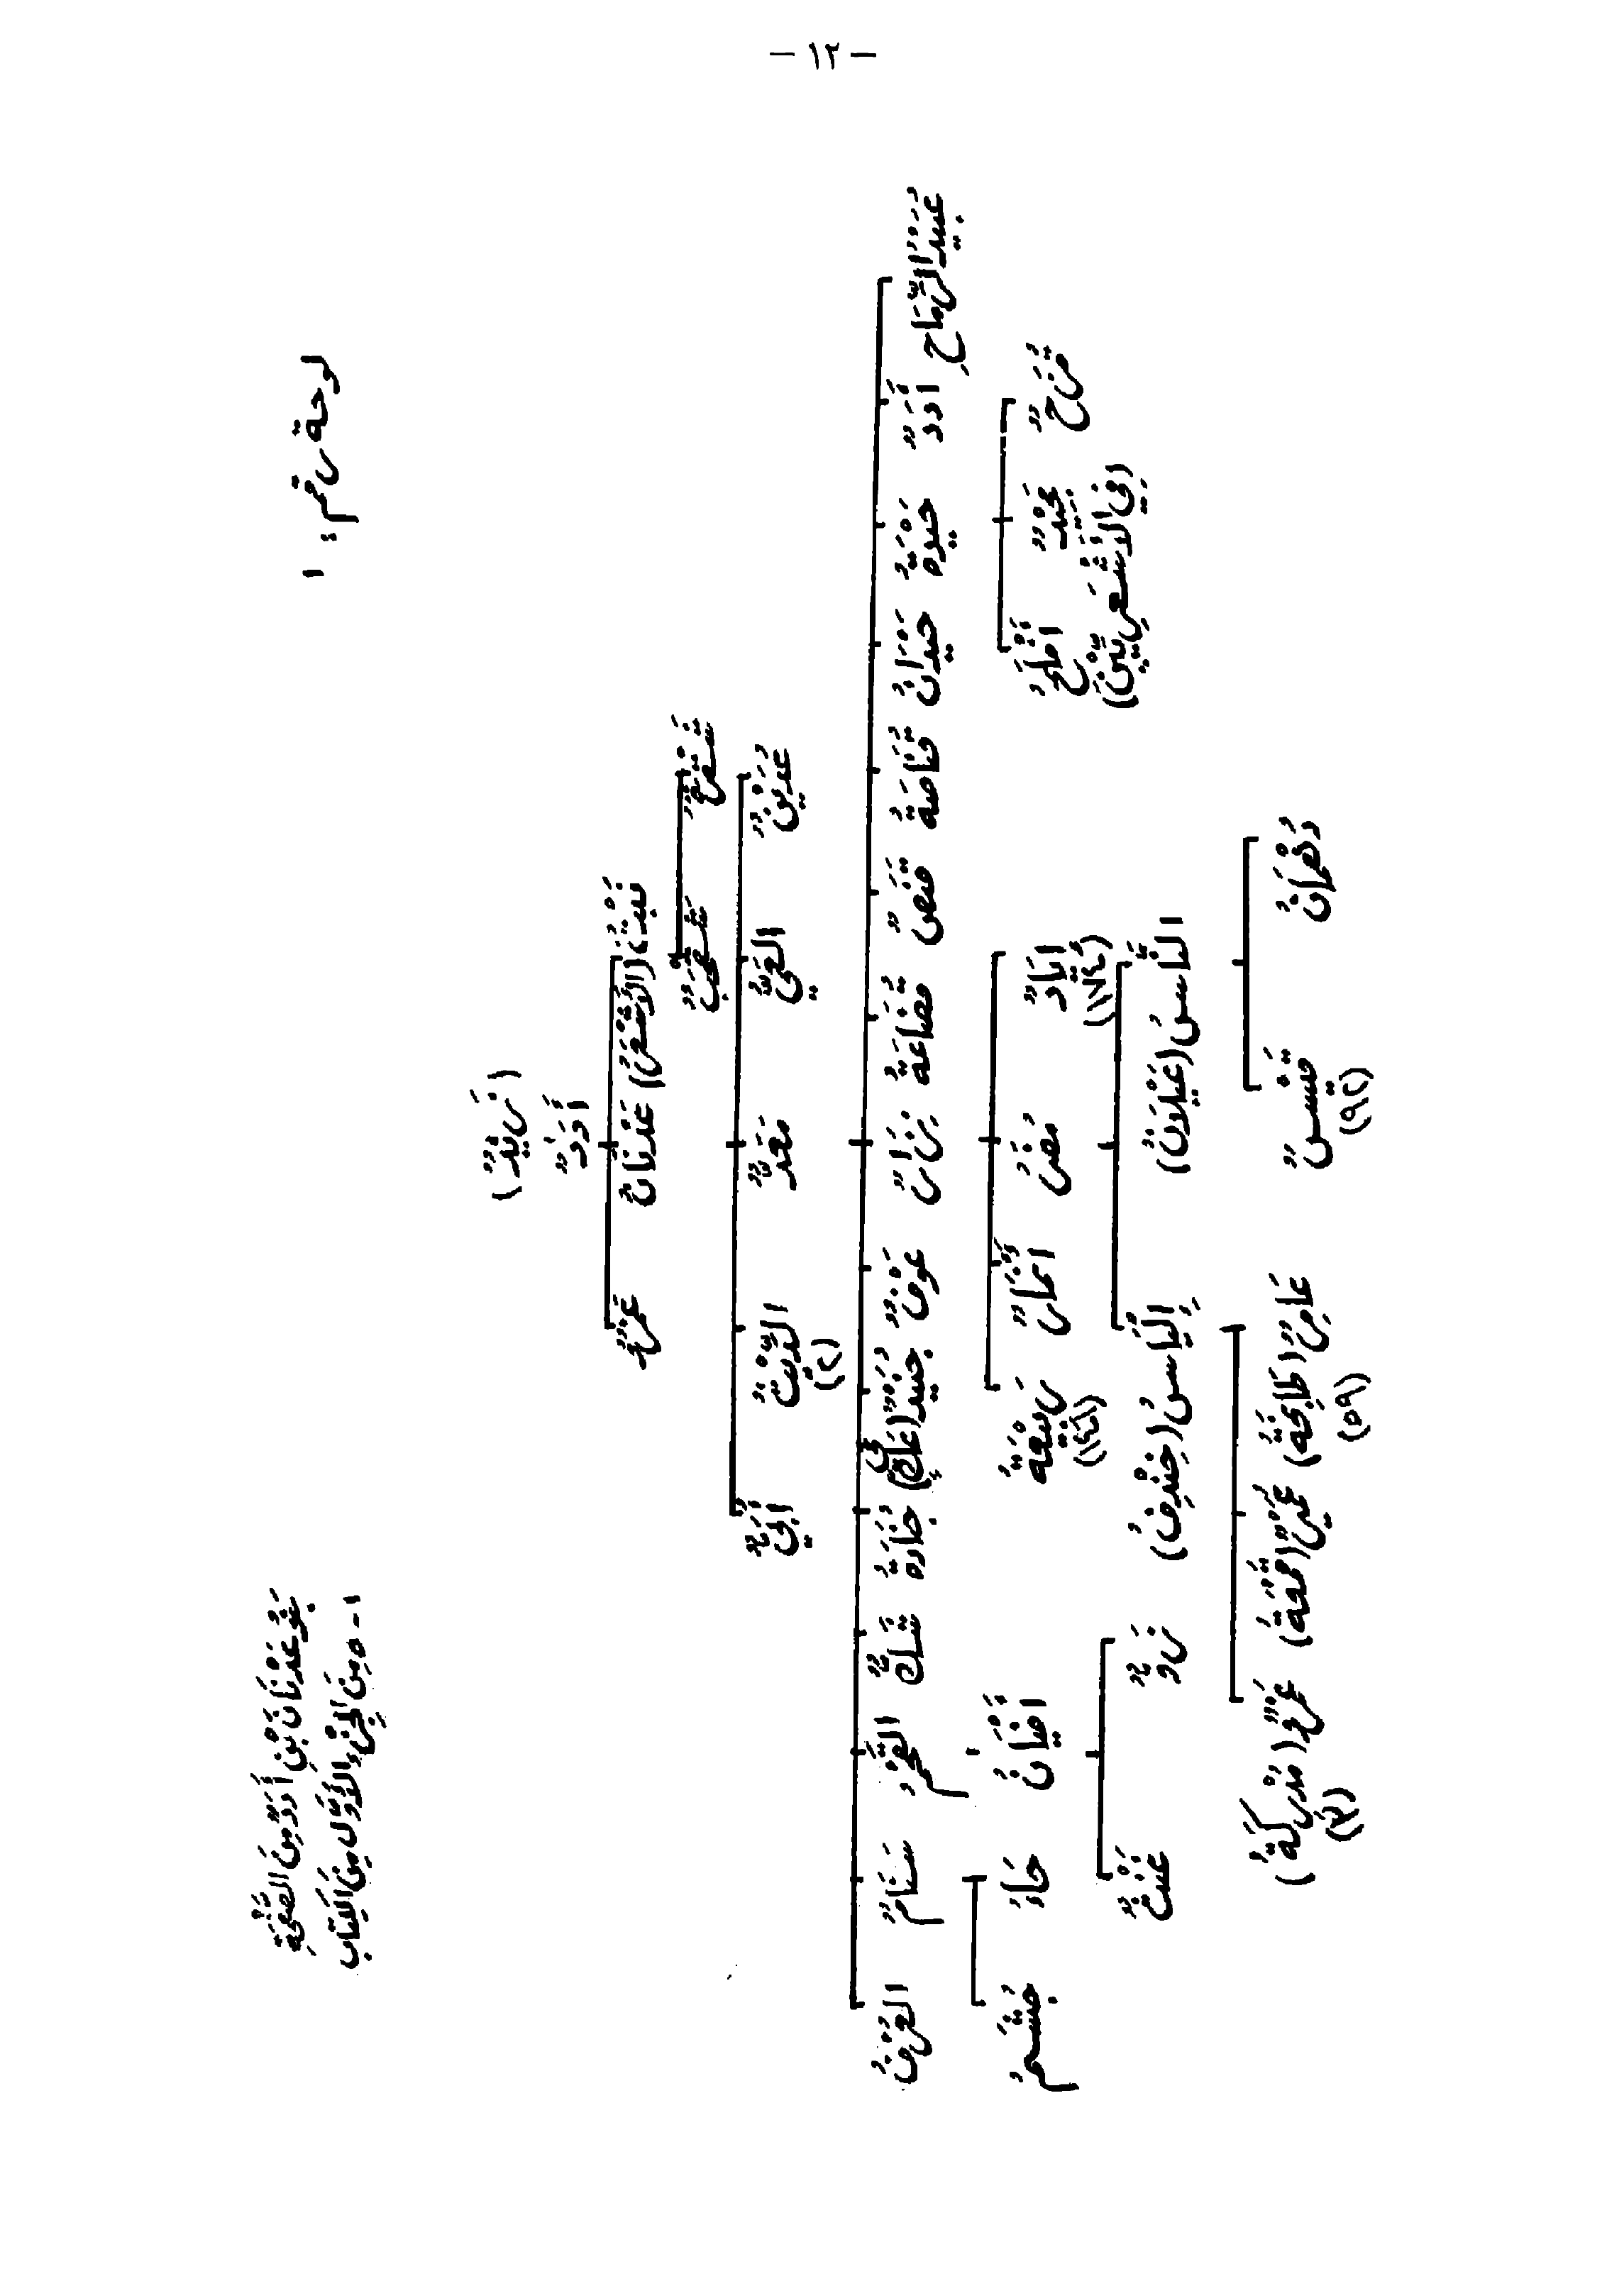 - ١٢ -
لوحة رقم: ١
بَنُو عَدْنَانَ بْنِ أُدَدٍ مِنَ الصَّفْحَةِ
١ - ٥ مِنَ الْجُزْءِ الأَوَّلِ مِنَ الْكِتَابِ
(زَيْدٌ)
أُدَدٌ
نَبْتٌ (الأَشْعَرُ) عَدْنَانُ عَمْرٌو
شَقْحَبٌ
عُدَيْنٌ العَيُّ مَعَدٌّ الدَّيْثُ (٢) أُبَيٌّ
عُبَيْدُ الرَّمَّاحِ أُدَدٌ حَيْوَةُ حَيْدَانُ قُنَاصَةُ قَنَصٌ قُضَاعَةُ نِزَارٌ عَوْفٌ جُنَيْدٌ جُنَادَةُ شَكٌّ القَحْمُ سَنَامٌ العُرْفُ
قُزَحٌ أَفْلَحُ
(فِي الأَشْعَرِيِّيْنَ)
إِيَادٌ (١٧٤) مُضَرُ أَنْمَارٌ رَبِيْعَةُ (١٤١)
أَفْيَانُ
حَاءُ جُشَمُ
النَّاسُ (عَيْلَانُ) إِلْيَاسُ (خِنْدِفُ)
نَزْوٌ
دُهْمَانُ قَيْسٌ (٩٢)
عَامِرٌ (طَابِخَةُ) (٥٩) عُمَيْرٌ (قَمَعَةُ) عَمْرٌو (مُدْرِكَةُ) (٣)